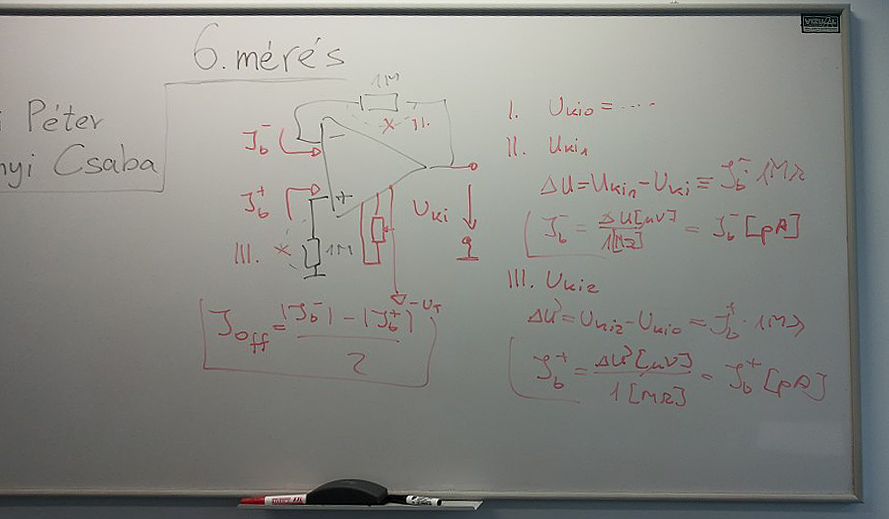 6. mérés
Péter
nyi Csaba
1M
X II.
J_b^-
−
J_b^+
+
U_ki
III. X
1M
-U_T
J_off = (|J_b^-| - |J_b^+|) / 2
I. U_ki0 = ....
II. U_ki1
ΔU = U_ki1 - U_ki = J_b^- · 1MΩ
J_b^- = ΔU[μV] / 1[MΩ] = J_b^- [pA]
III. U_ki2
ΔU' = U_ki2 - U_ki0 = J_b^+ · 1MΩ
J_b^+ = ΔU'[μV] / 1[MΩ] = J_b^+ [pA]